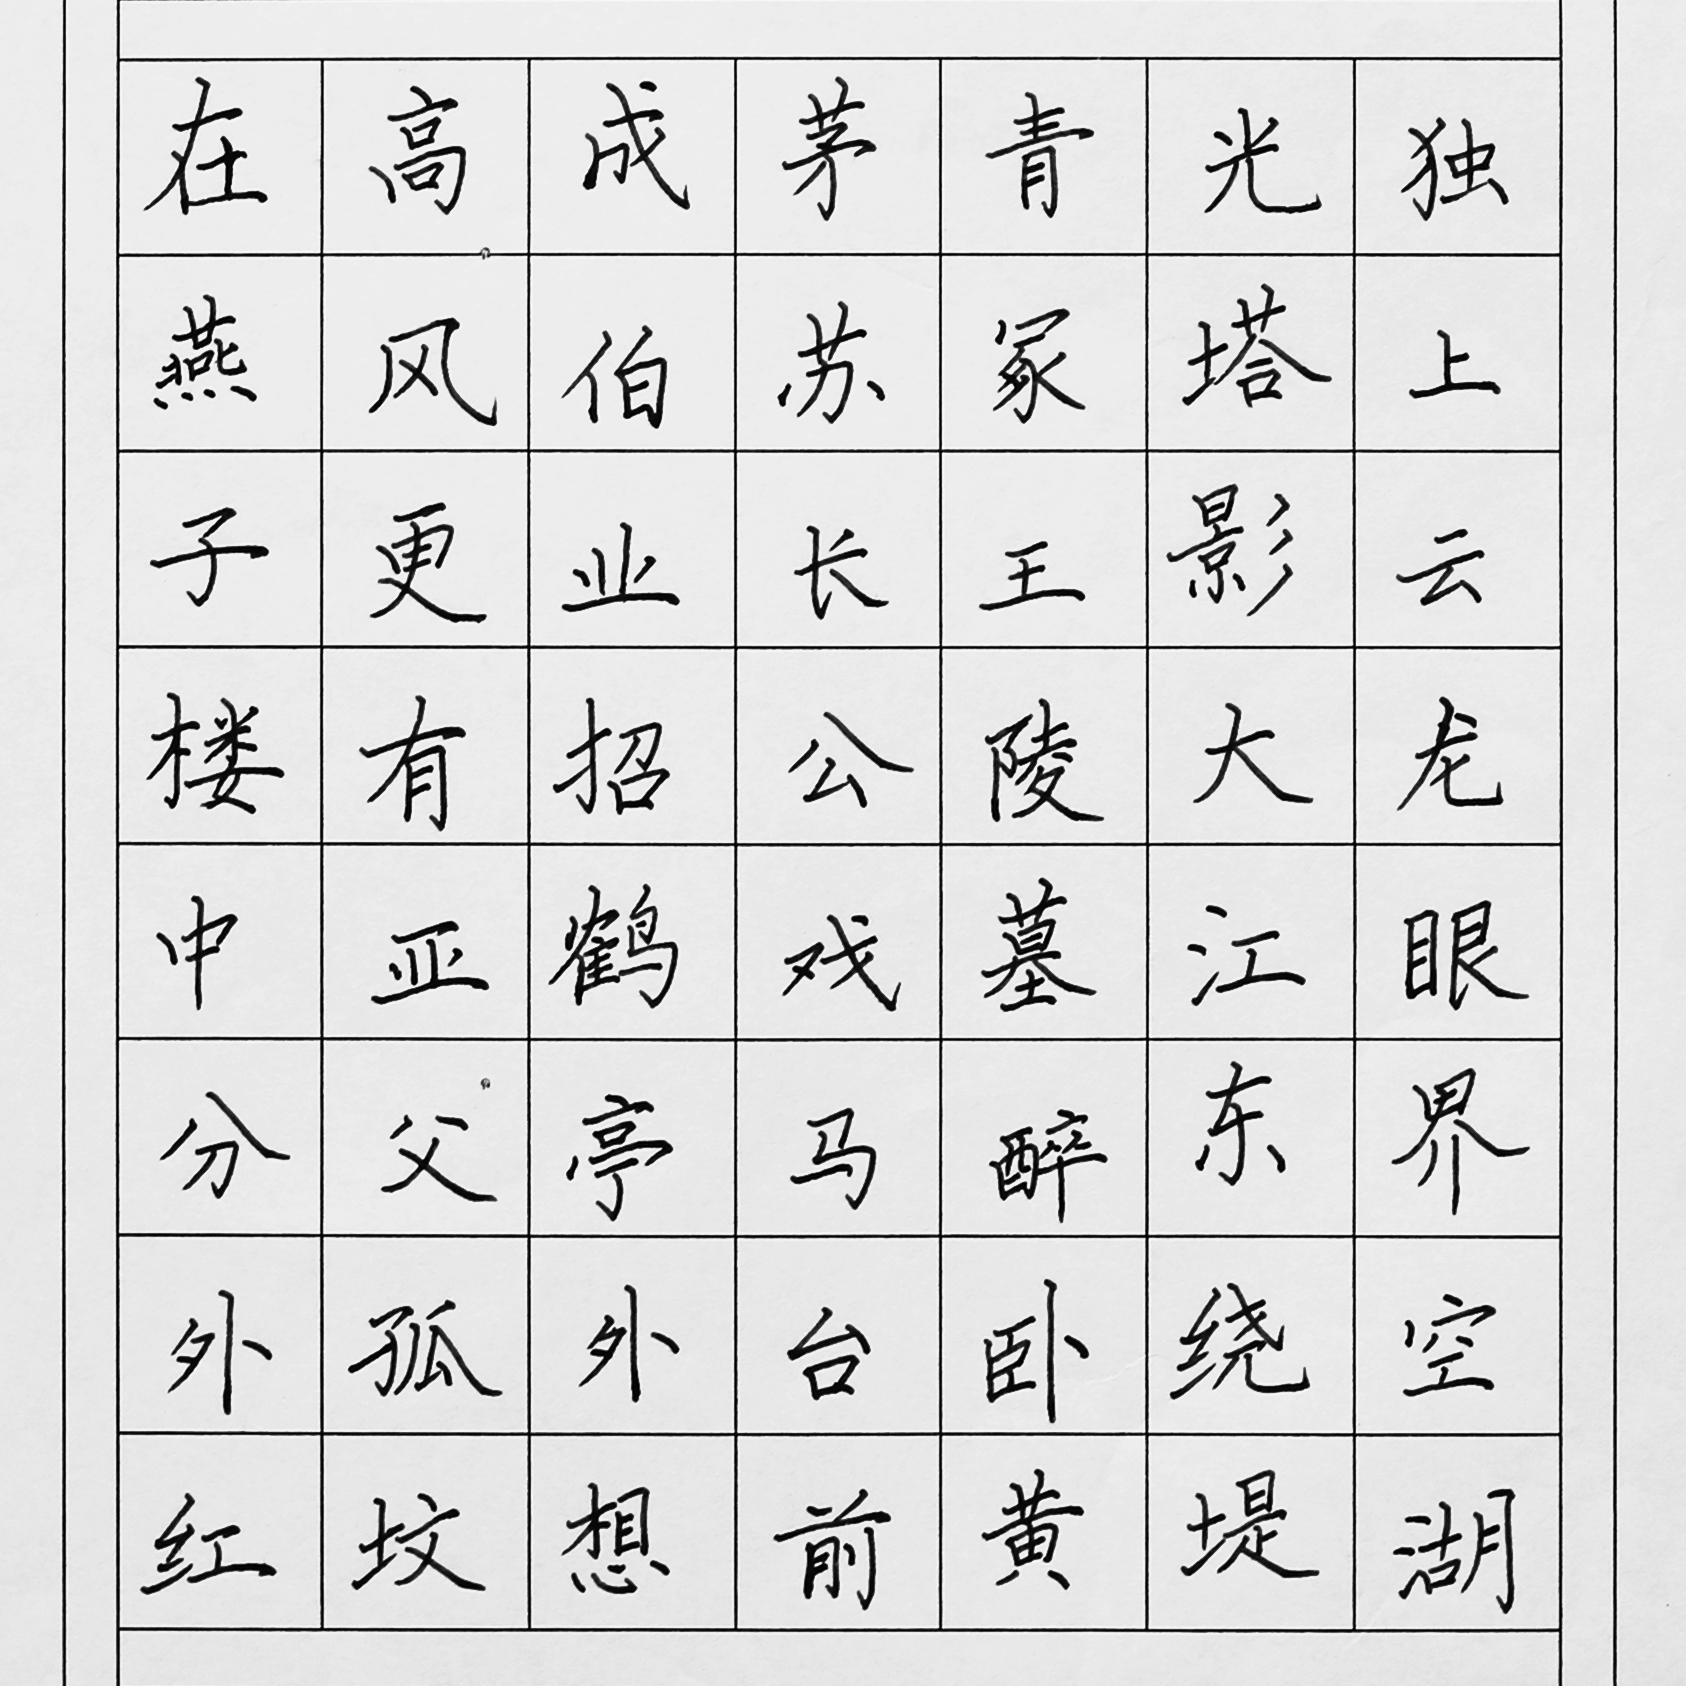 独上云龙眼界空湖
光塔影大江东绕堤
青冢王陵墓醉卧黄
茅苏长公戏马台前
成伯业招鹤亭外想
高风更有亚父孤坟
在燕子楼中分外红